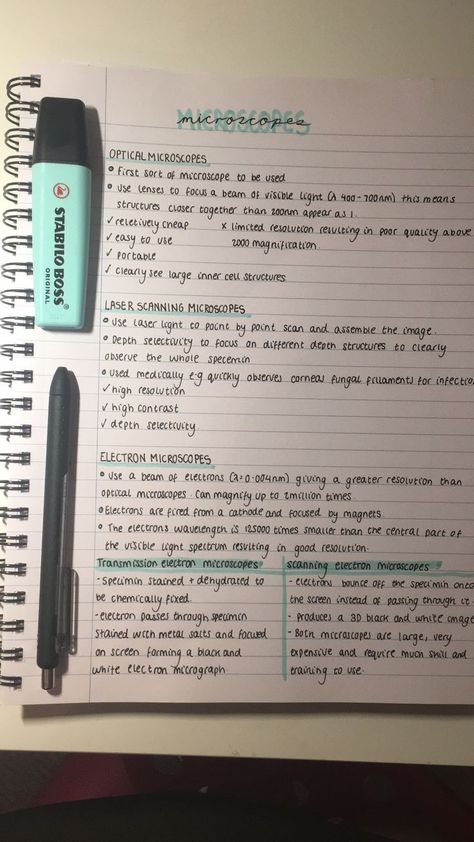 microscopes
MICROSCOPES
STABILO BOSS
ORIGINAL
OPTICAL MICROSCOPES
• First sort of microscope to be used
• Use lenses to focus a beam of visible light (λ 400-700nm) this means
structures closer together than 200nm appear as 1.
✓ reletively cheap x limited resolution resulting in poor quality above
✓ easy to use 2000 magnification.
✓ portable
✓ clearly see large inner cell structures
LASER SCANNING MICROSCOPES
• Use laser light to point by point scan and assemble the image.
• Depth selectivity to focus on different depth structures to clearly
observe the whole specimin
• Used medically e.g quickly observes corneal fungal filaments for infection
✓ high resolution
✓ high contrast
✓ depth selectivity.
ELECTRON MICROSCOPES
• Use a beam of electrons (λ=0.004nm) giving a greater resolution than
optical microscopes. Can magnify up to 2million times.
• Electrons are fired from a cathode and focused by magnets.
• The electrons wavelength is 125000 times smaller than the central part of
the visible light spectrum resulting in good resolution.
Transmission electron microscopes
- specimin stained + dehydrated to
be chemically fixed.
- electron passes through specimin
stained with metal salts and focused
on screen forming a black and
white electron micrograph.
scanning electron microscopes
- electrons bounce off the specimin onto
the screen instead of passing through it.
- produces a 3D black and white image
- Both microscopes are large, very
expensive and require much skill and
training to use.